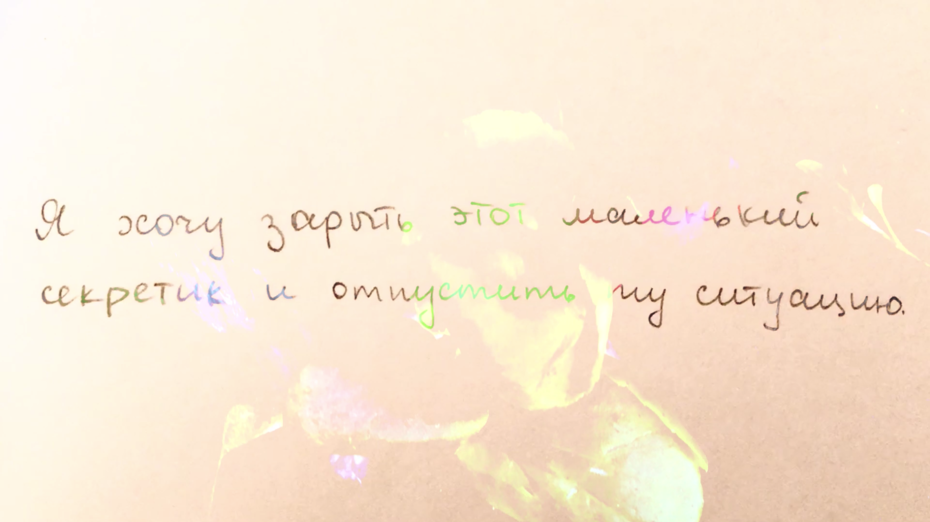 Я хочу зарыть этот маленький
секретик и отпустить ту ситуацию.